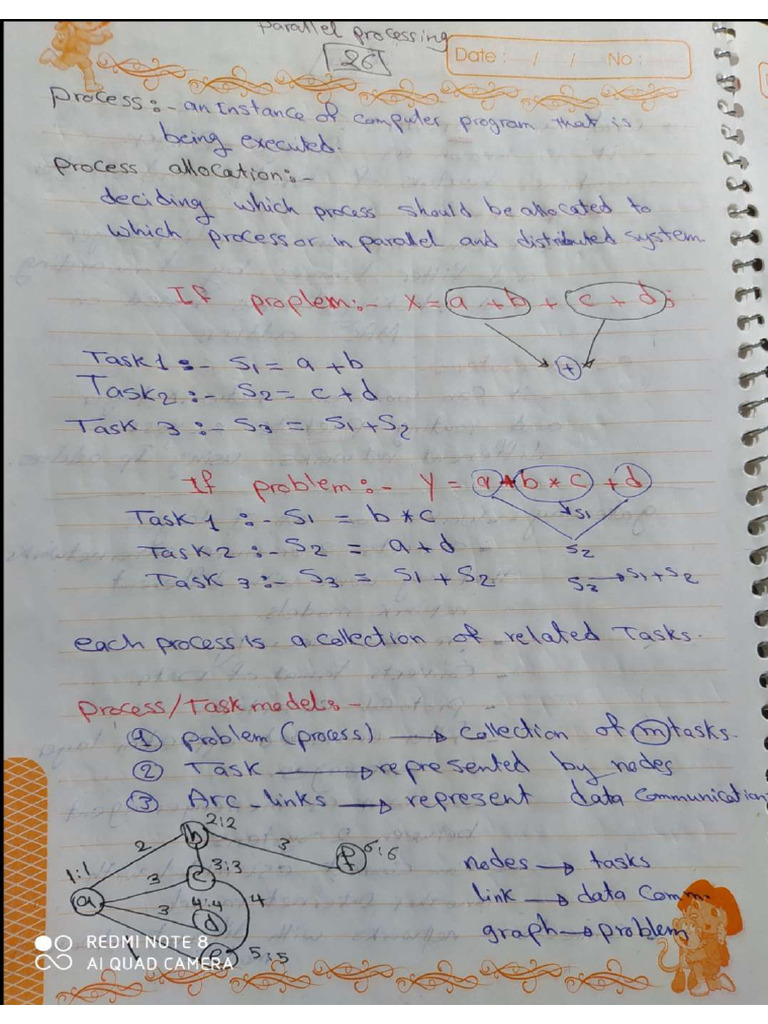 parallel processing
26
Date: / / No:
process:- an Instance of computer program that is
being executed.
process allocation:-
deciding which process should be allocated to
which processor in parallel and distributed system.
If proplem:- x= a + b + c + d;
+
Task 1:- S1 = a + b
Task 2:- S2 = c + d
Task 3:- S3 = S1 + S2
If problem:- y = a + b * c + d
S1
Task 1:- S1 = b * c
S2
Task 2:- S2 = a + d
Task 3:- S3 = S1 + S2
S2 → S1 + S2
each process is a collection of related Tasks.
process/Task model:-
① problem (process) → collection of m tasks.
② Task → represented by nodes
③ Arc-links → represent data communication
2:2
b
2
3
f
6:6
nodes → tasks
1:1
3:3
c
3
a
link → data comm.
4:4
4
3
d
graph → problem
e
5:5
REDMI NOTE 8
AI QUAD CAMERA